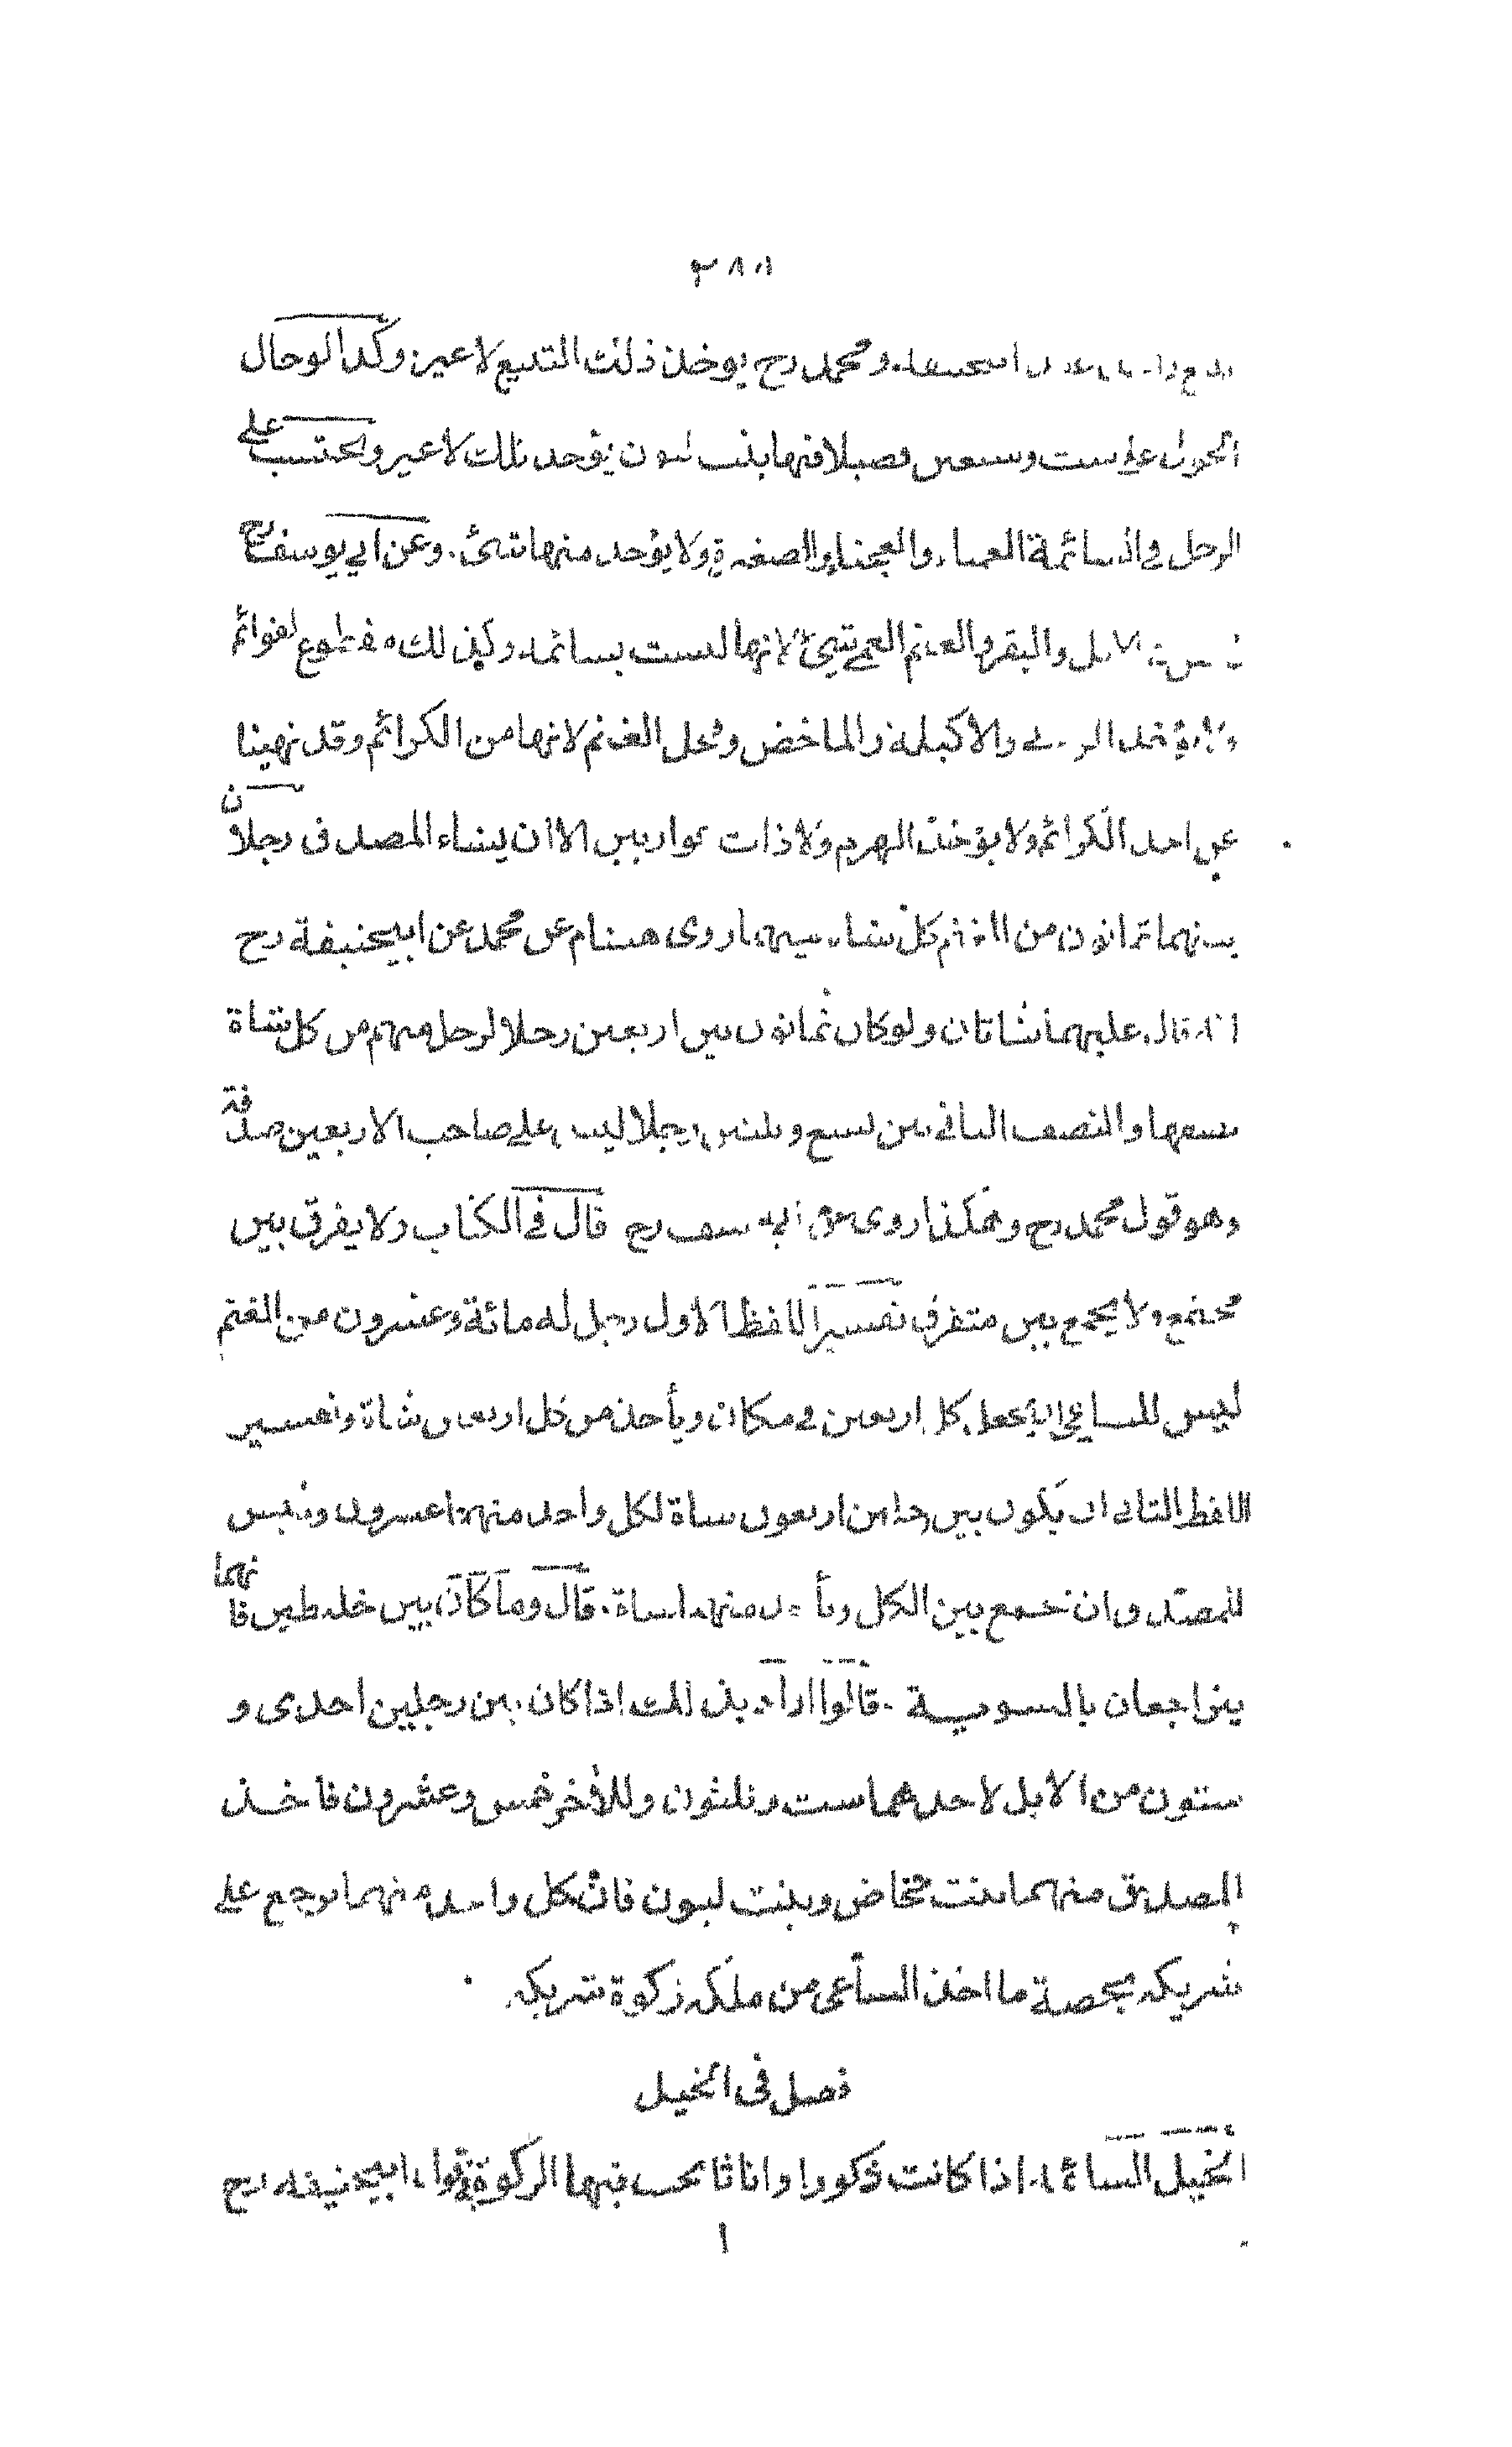 ومحمد رح يوخذ ذلك التبيع لا عين وكذا لو حال
الحول على ست وسبعين فصيلا فيها بنت لبون يؤخذ تلك لا عير ويحتسب على
الرجل في السائمة العمياء والعجفاء والصغيرة ولا يؤخذ منها شئ. وعن ابي يوسف رح
الابل والبقر والغنم العمى شئ لانها ليست بسائمة وكذلك مقطوع القوائم
ولا يؤخذ الربى والاكيلة والماخض وفحل الغنم لانها من الكرائم وقد نهينا
عن اخذ الكرائم ولا يؤخذ الهرم ولا ذات عوار بين الا ان يشاء المصدق رجلان
بينهما ثمانون من الغنم كل شاة بينهما روى هشام عن محمد عن ابيحنيفة رح
انه قال عليهما شاتان ولو كان ثمانون بين اربعين رجلا لرجل منهم من كل شاة
نصفها والنصف الثاني بين تسع وثلثين رجلا ليس على صاحب الاربعين صدقة
وهو قول محمد رح وهكذا روى عن ابي يوسف رح قال في الكتاب ولا يفرق بين
مجتمع ولا يجمع بين متفرق تفسير اللفظ الاول رجل له مائة وعشرون من الغنم
ليس للساعي ان يجعل كل اربعين في مكان ويأخذ من كل اربعين شاة وتفسير
اللفظ الثاني ان يكون بين رجلين اربعون شاة لكل واحد منهما عشرون وليس
للمصدق ان يجمع بين الكل ويأخذ منهما شاة. قال وما كان بين خليطين فانهما
يتراجعان بالسوية. قالوا اراد بذلك اذا كان بين رجلين احدى و
ستون من الابل لاحدهما ست وثلثون وللآخر خمس وعشرون فاخذ
المصدق منهما بنت مخاض وبنت لبون فان كل واحد منهما يرجع على
شريكه بحصة ما اخذ الساعى من ملكه زكوة شريكه
فصل فى الخيل
الخيل السائمة اذا كانت ذكورا واناثا يجب فيها الزكوة في قول ابيحنيفه رح